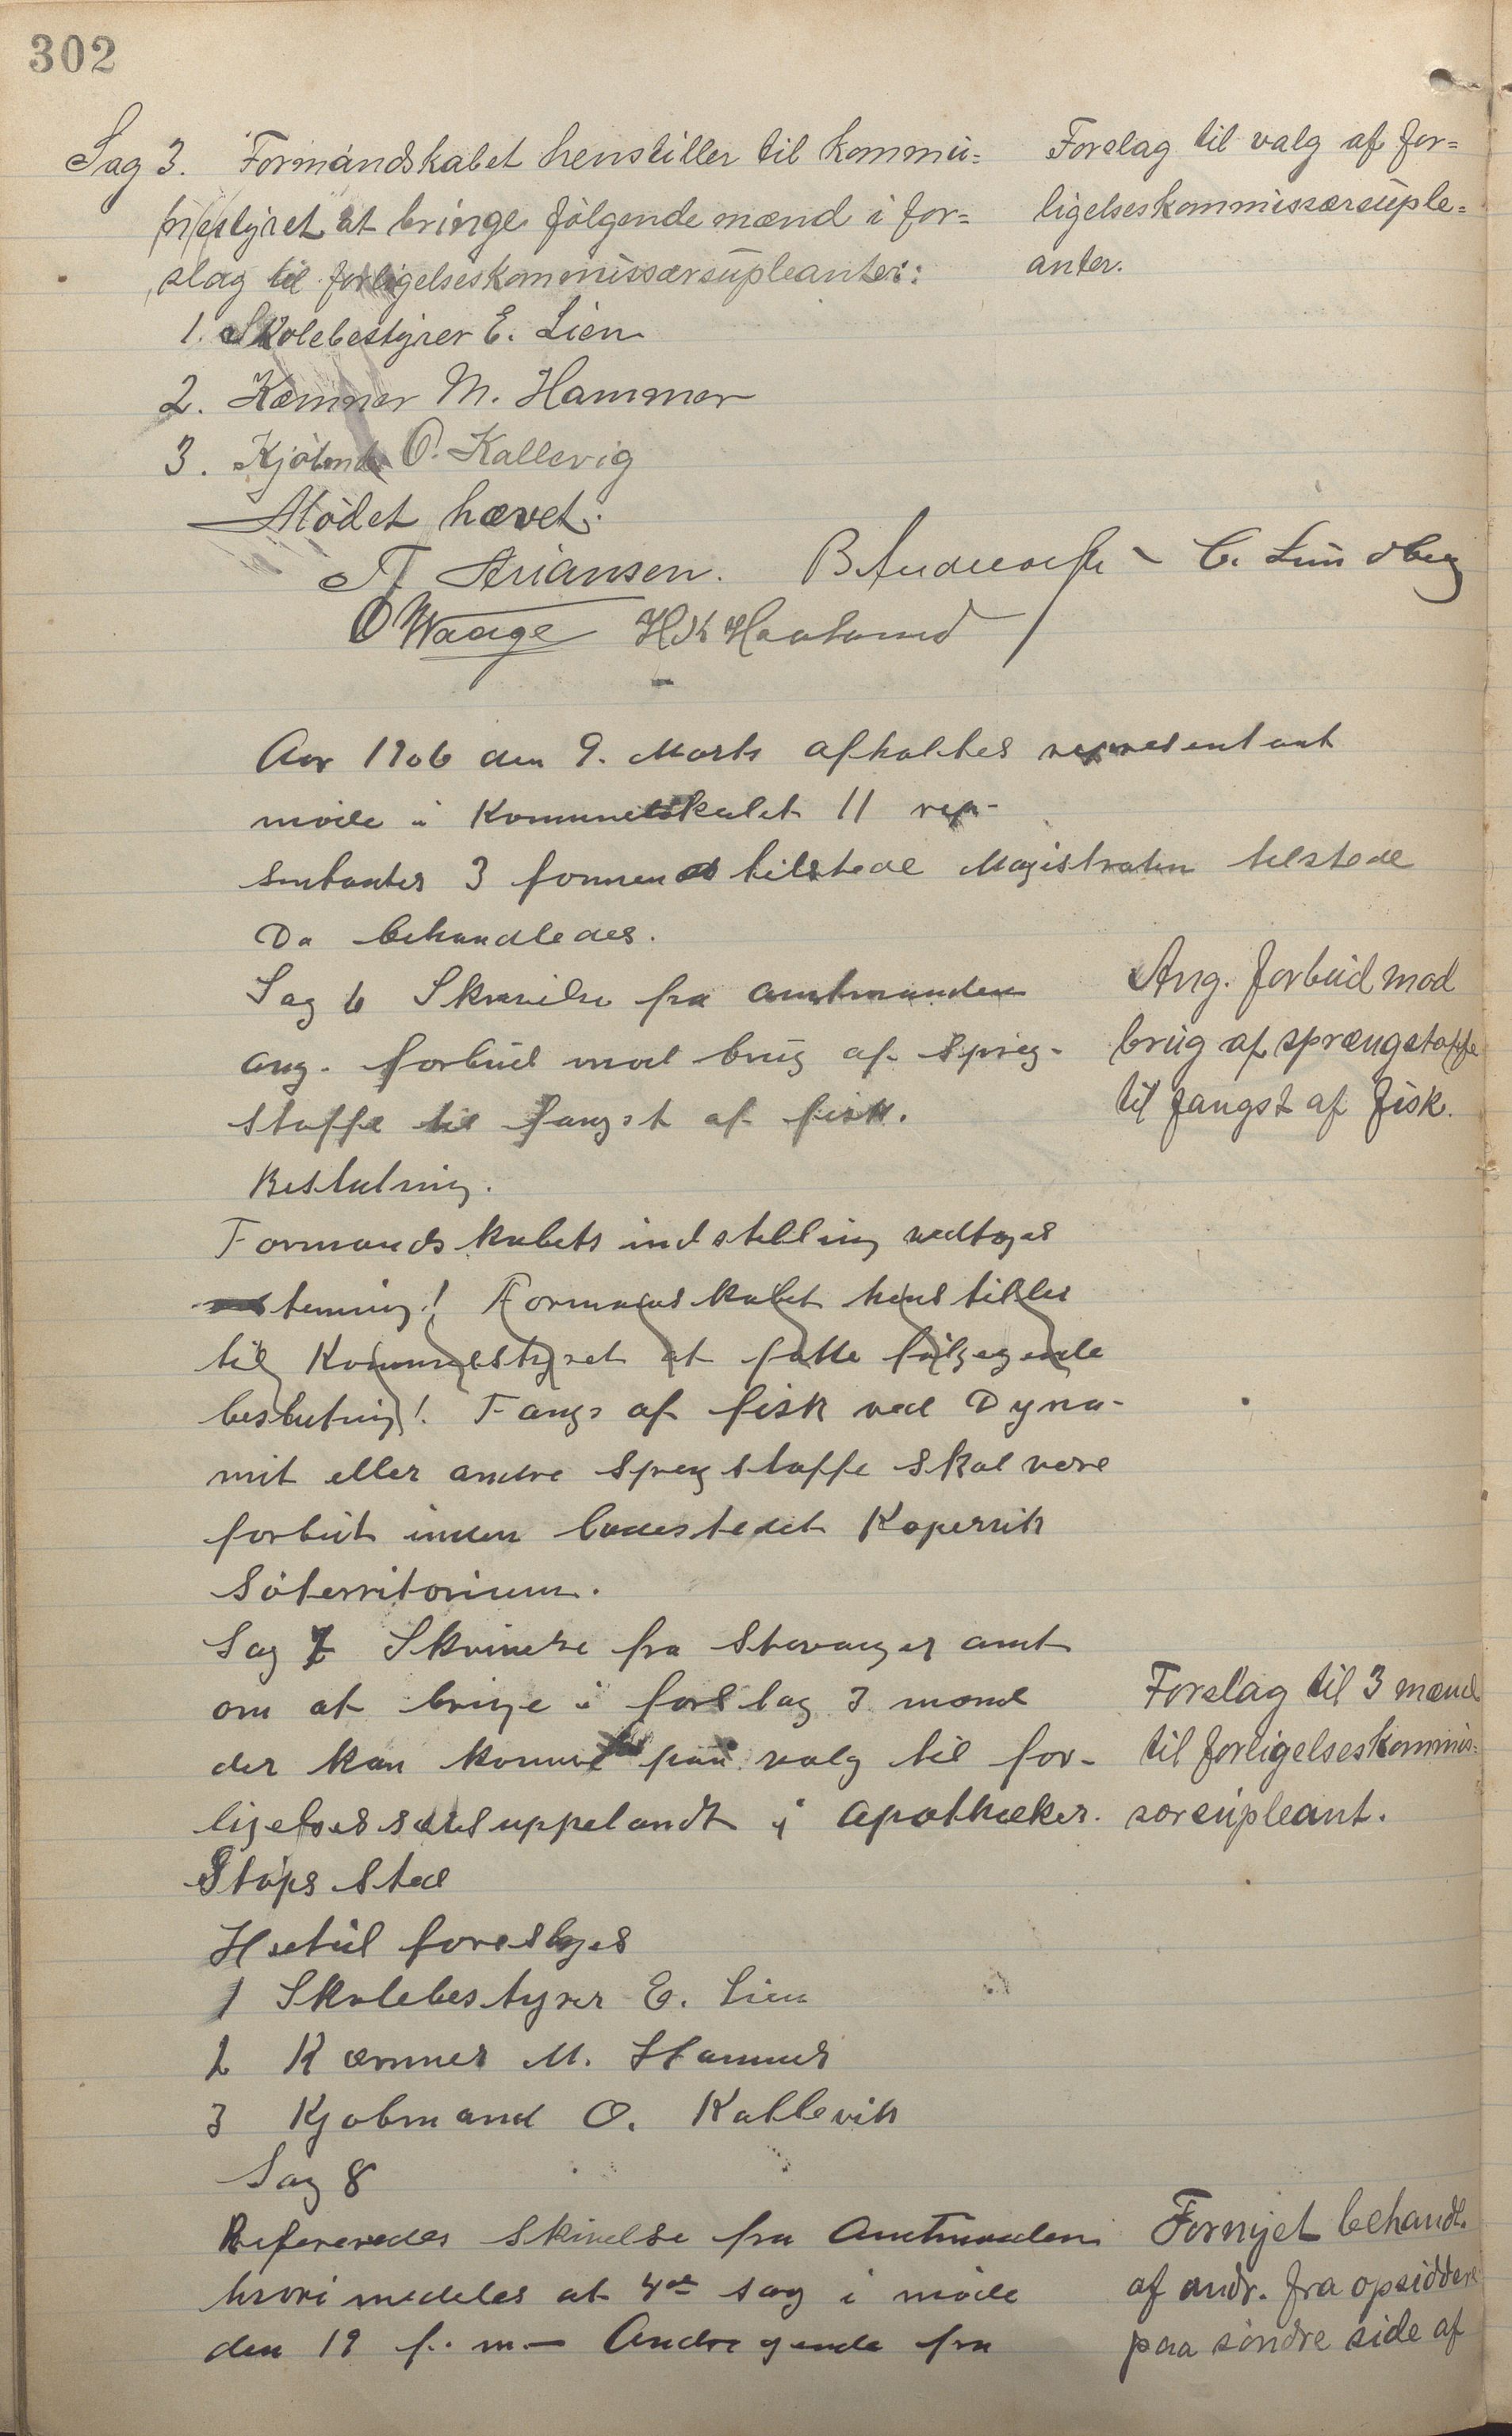 302
Sag 3. Formandskabet henstiller til kommu=
nestyret at bringe følgende mænd i for=
slag til forligelseskommissærsupleanter:
1. Skolebestyrer E. Lien
2. Kæmner M. Hammer
3. Kjøbmd. O. Kallevig
Mødet hævet.
Forslag til valg af for=
ligelseskommissærsuple=
anter.
Ariansen. C. Lundberg
O Waage
Aar 1906 den 9. Marts afholdtes representant
møde i Kommunelokalet 11 rep-
sentanter 3 formend tilstede Magistraten tilstede
Da behandledes.
Sag 6 Skrivelse fra amtmanden
ang. forbud mod brug af spreg-
stoffe til fangst af fisk.
Beslutning.
Ang. forbud mod
brug af sprængstoffe
til fangst af fisk.
Formandskabets indstilling vedtoges
stemmig! Formandskabet henstiller
til Kommunestyret at fatte følgegende
beslutning! Fangs af fisk ved Dyna-
mit eller andre spregstoffe skal være
forbut inden ladestedet Kopervik
Søterritorium.
Sag 7 Skrivelse fra Stavanger amt
om at bringe i forslag 3 mænd
der kan komme paa valg til for-
ligelsessærsuppelandt i Apothæker.
Støps sted
Hertil foresloges
1 Skolebestyrer E. Lien
2 Kæmner M. Hammer
3 Kjøbmand O. Kallevik
Forslag til 3 mænd
til forligelseskommis=
sorsupleant.
Sag 8
Refereredes skrivelse fra Amtmanden
hvori medeles at 4de sag i møde
den 19 f. m. Andragende fra
Fornyet behandl.
af andr. fra opsiddere
paa søndre side af